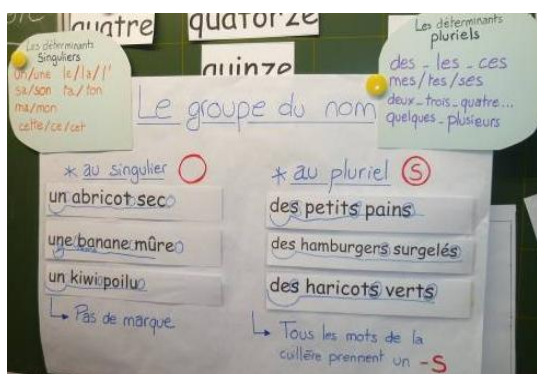 quatre
quatorze
quinze
Les déterminants
Singuliers
un/une le/la/l'
sa/son ta/ton
ma/mon
cette/ce/cet
Les déterminants
pluriels
des - les - ces
mes/tes/ses
deux - trois - quatre...
quelques - plusieurs
Le groupe du nom
* au singulier
un abricot sec
une banane mûre
un kiwi poilu
↳ Pas de marque
* au pluriel S
des petits pains
des hamburgers surgelés
des haricots verts
↳ Tous les mots de la
cuillère prennent un -S